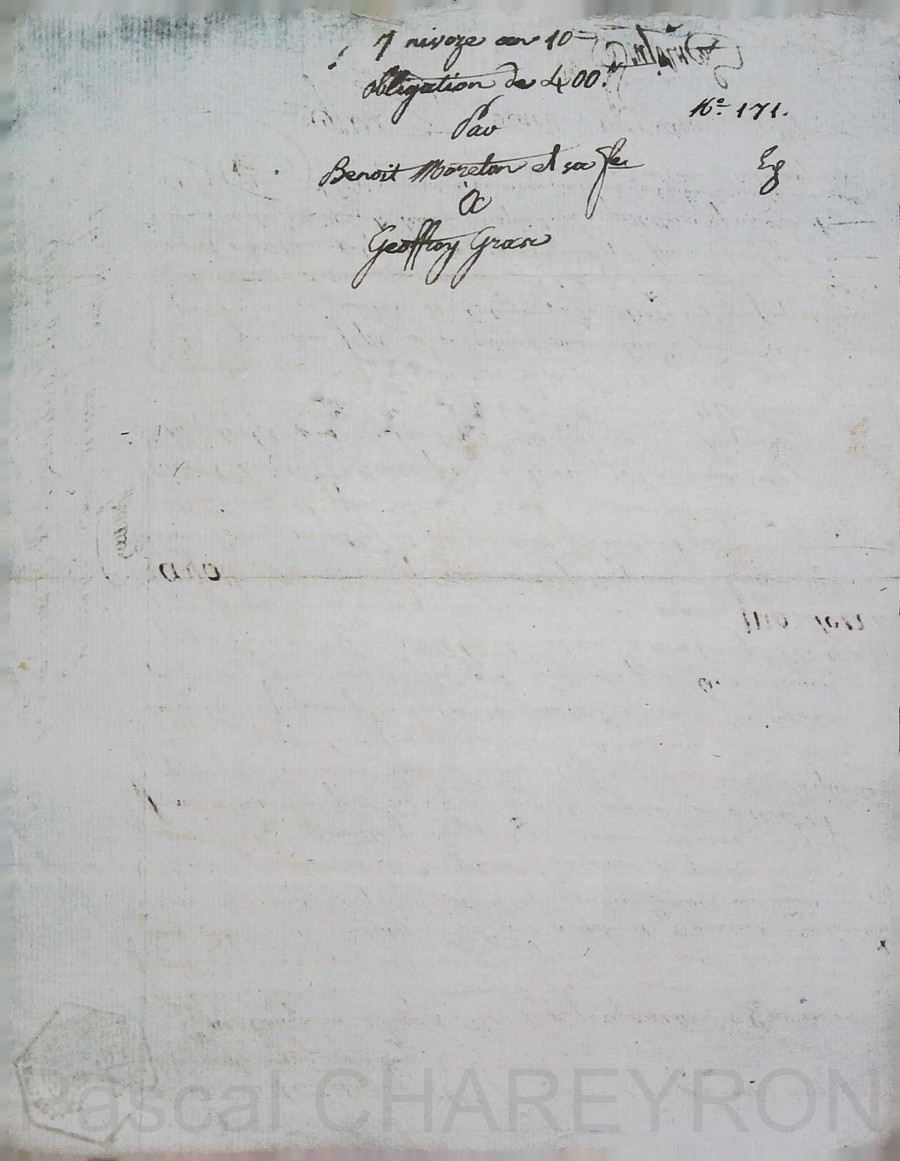 7 nivoze an 10
obligation de 400.
Nº 171.
Par
Benoit Moreton et sa fe
Eg
A
Geoffroy Gras
Pascal CHAREYRON